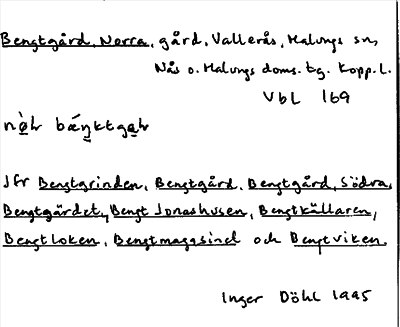 Bengtgård, Norra, gård, Vallerås, Malungs sn,
Nås o. Malungs doms. tg. Kopp. l.
Vbl 169
nø̀r bǽŋktgaɽ
Jfr Bengtgrinden, Bengtgård, Bengtgård, Södra,
Bengtgärdet, Bengt Jonashusen, Bengtkällaren,
Bengtloken, Bengtmagasinet och Bengtviken.
Inger Döhl 1995